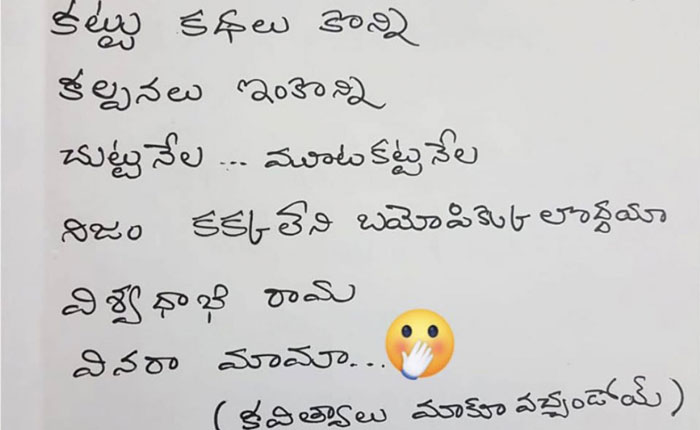 కట్టు కథలు కొన్ని
కల్పనలు ఇంకొన్ని
చుట్టనేల ... మూటకట్టనేల
నిజం కక్కలేని బయోపిక్కులొద్దయా
విశ్వధాభి రామ
వినరా మామా...
(కవిత్వాలు మాకూ వచ్చండోయ్)